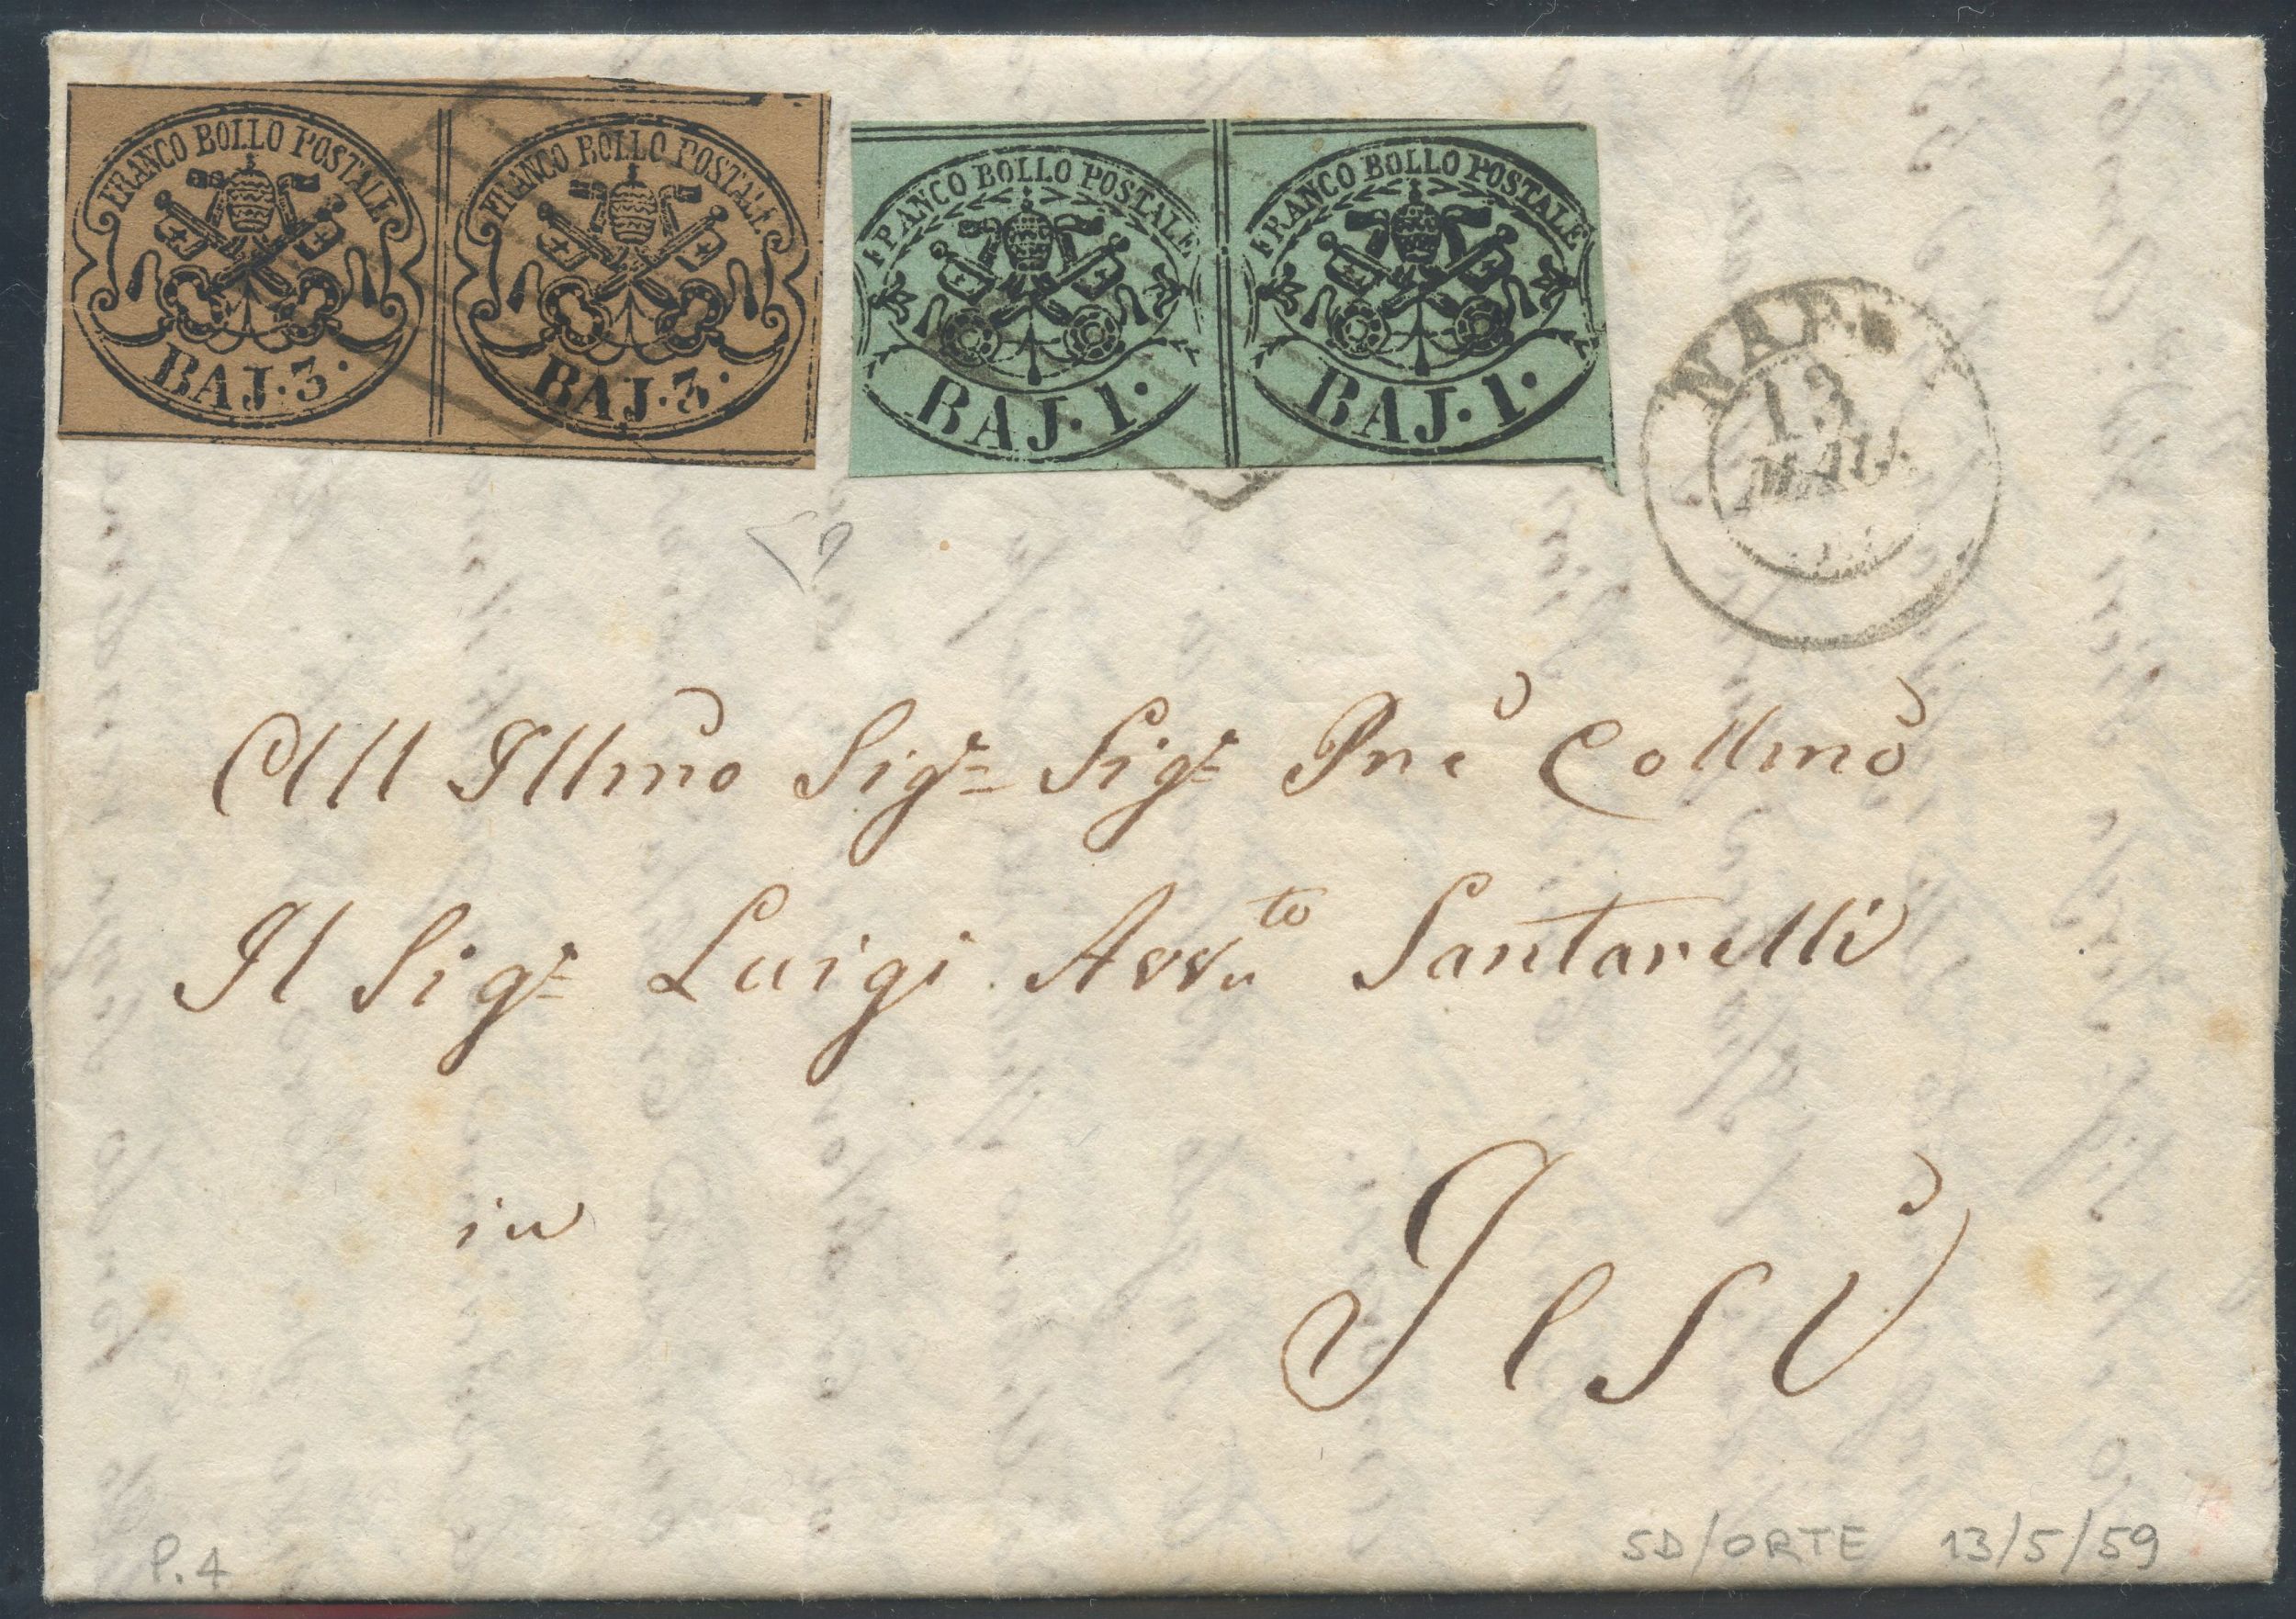 FRANCO BOLLO POSTALE
BAJ.3.
FRANCO BOLLO POSTALE
BAJ.3.
FRANCO BOLLO POSTALE
BAJ.1.
FRANCO BOLLO POSTALE
BAJ.1.
NAR
13
MAG.
All Illmo Sigr Sigr Pne Collmo
Il Sigr Luigi Avv.to Santarelli
in
Jesi
P.4
SD/ORTE 13/5/59